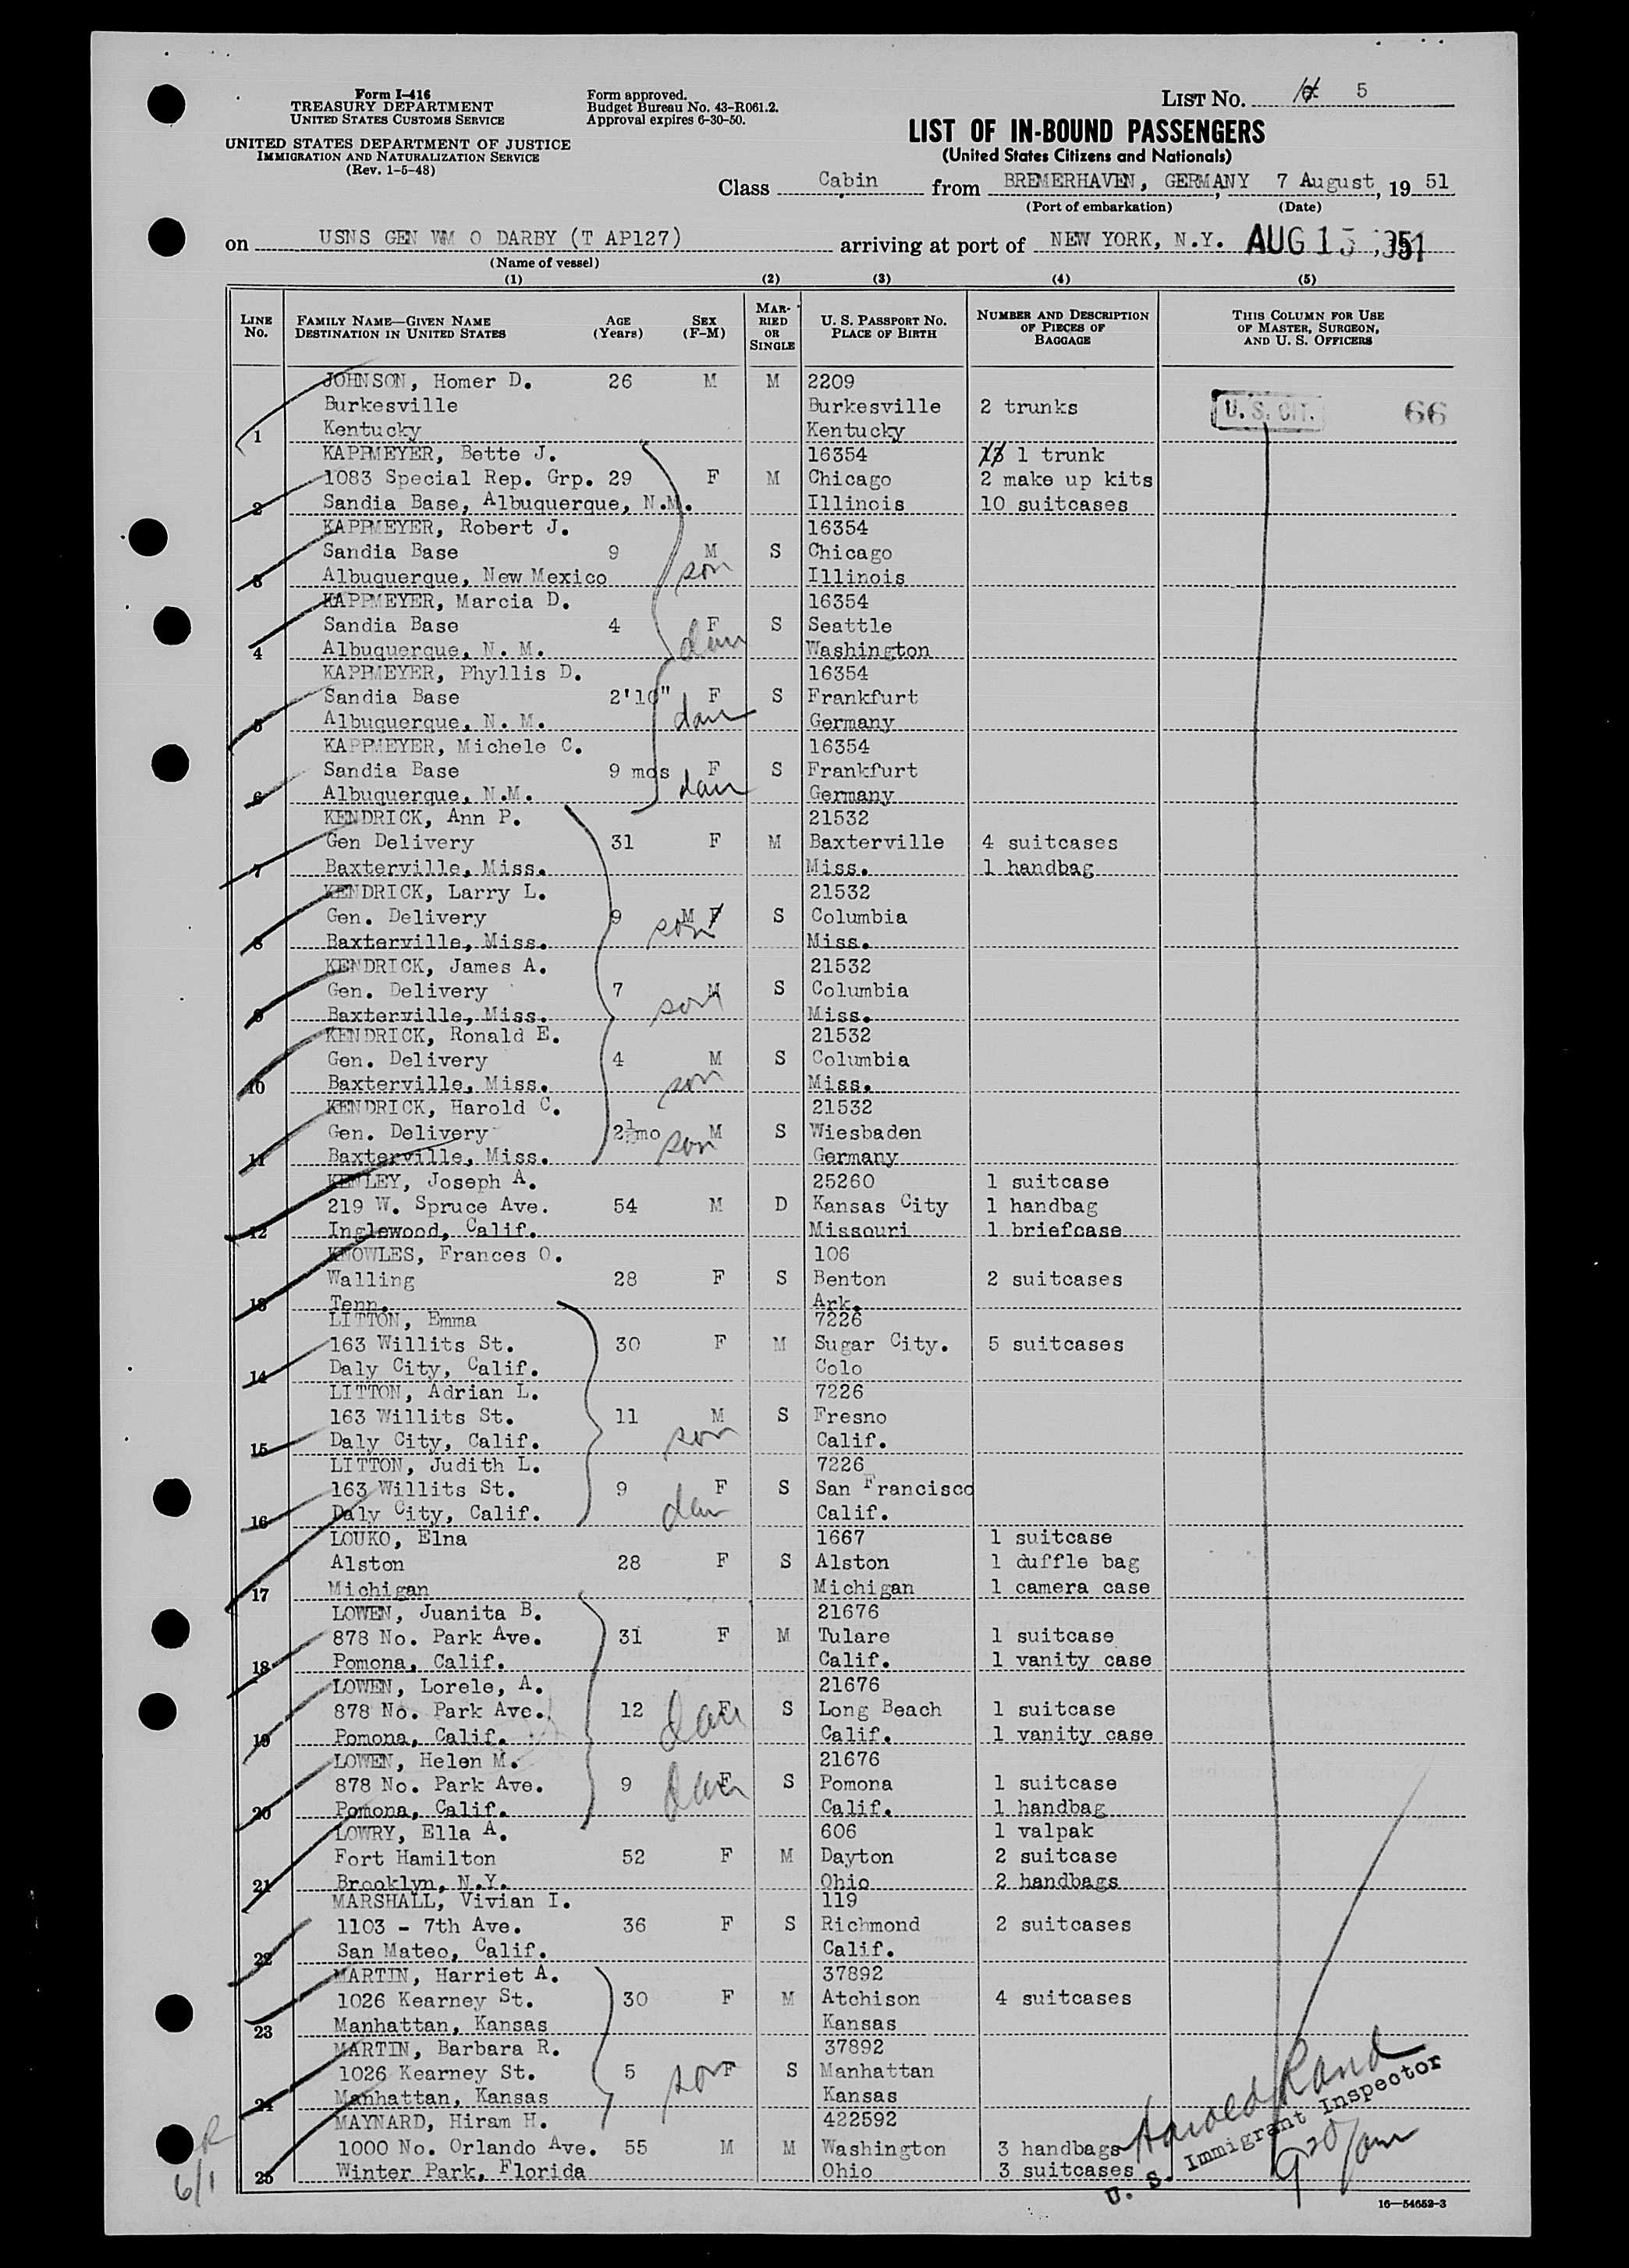 Form I-416
TREASURY DEPARTMENT
UNITED STATES CUSTOMS SERVICE
UNITED STATES DEPARTMENT OF JUSTICE
IMMIGRATION AND NATURALIZATION SERVICE
(Rev. 1-5-48)
Form approved.
Budget Bureau No. 43-R061.2.
Approval expires 6-30-50.
LIST No. 5
LIST OF IN-BOUND PASSENGERS
(United States Citizens and Nationals)
Class Cabin from BREMERHAVEN, GERMANY, 7 August, 19 51
(Port of embarkation) (Date)
on USNS GEN WM O DARBY (T AP127) arriving at port of NEW YORK, N.Y. AUG 13 1951
(Name of vessel)
(1) (2) (3) (4) (5)
LINE No. FAMILY NAME—GIVEN NAME DESTINATION IN UNITED STATES AGE (Years) SEX (F-M) MARRIED OR SINGLE U. S. PASSPORT NO. PLACE OF BIRTH NUMBER AND DESCRIPTION OF PIECES OF BAGGAGE THIS COLUMN FOR USE OF MASTER, SURGEON, AND U. S. OFFICERS
JOHNSON, Homer D. 26 M M 2209
Burkesville Burkesville 2 trunks U. S. CIT. 66
1 Kentucky Kentucky
KAPPMEYER, Bette J. 16354 13 1 trunk
1083 Special Rep. Grp. 29 F M Chicago 2 make up kits
2 Sandia Base, Albuquerque, N.M. Illinois 10 suitcases
KAPPMEYER, Robert J. 16354
Sandia Base 9 M S Chicago
3 Albuquerque, New Mexico son Illinois
KAPPMEYER, Marcia D. 16354
Sandia Base 4 F S Seattle
4 Albuquerque, N. M. dau Washington
KAPPMEYER, Phyllis D. 16354
Sandia Base 2'10" F S Frankfurt
5 Albuquerque, N. M. dau Germany
KAPPMEYER, Michele C. 16354
Sandia Base 9 mos F S Frankfurt
6 Albuquerque, N.M. dau Germany
KENDRICK, Ann P. 21532
Gen Delivery 31 F M Baxterville 4 suitcases
7 Baxterville, Miss. Miss. 1 handbag
KENDRICK, Larry L. 21532
Gen. Delivery 9 M F S Columbia
8 Baxterville, Miss. son Miss.
KENDRICK, James A. 21532
Gen. Delivery 7 M S Columbia
9 Baxterville, Miss. son Miss.
KENDRICK, Ronald E. 21532
Gen. Delivery 4 M S Columbia
10 Baxterville, Miss. son Miss.
KENDRICK, Harold C. 21532
Gen. Delivery 2½mo M S Wiesbaden
11 Baxterville, Miss. son Germany
KENLEY, Joseph A. 25260 1 suitcase
219 W. Spruce Ave. 54 M D Kansas City 1 handbag
12 Inglewood, Calif. Missouri 1 briefcase
KNOWLES, Frances O. 106
Walling 28 F S Benton 2 suitcases
13 Tenn. Ark.
LITTON, Emma 7226
163 Willits St. 30 F M Sugar City. 5 suitcases
14 Daly City, Calif. Colo
LITTON, Adrian L. 7226
163 Willits St. 11 M S Fresno
15 Daly City, Calif. son Calif.
LITTON, Judith L. 7226
163 Willits St. 9 F S San Francisco
16 Daly City, Calif. dau Calif.
LOUKO, Elna 1667 1 suitcase
Alston 28 F S Alston 1 duffle bag
17 Michigan Michigan 1 camera case
LOWEN, Juanita B. 21676
878 No. Park Ave. 31 F M Tulare 1 suitcase
18 Pomona, Calif. Calif. 1 vanity case
LOWEN, Lorele, A. 21676
878 No. Park Ave. 12 dau F S Long Beach 1 suitcase
19 Pomona, Calif. Calif. 1 vanity case
LOWEN, Helen M. 21676
878 No. Park Ave. 9 dau F S Pomona 1 suitcase
20 Pomona, Calif. Calif. 1 handbag
LOWRY, Ella A. 606 1 valpak
Fort Hamilton 52 F M Dayton 2 suitcase
21 Brooklyn, N.Y. Ohio 2 handbags
MARSHALL, Vivian I. 119
1103 - 7th Ave. 36 F S Richmond 2 suitcases
22 San Mateo, Calif. Calif.
MARTIN, Harriet A. 37892
1026 Kearney St. 30 F M Atchison 4 suitcases
23 Manhattan, Kansas Kansas
MARTIN, Barbara R. 37892
1026 Kearney St. 5 son F S Manhattan
24 Manhattan, Kansas Kansas
MAYNARD, Hiram H. 422592
1000 No. Orlando Ave. 55 M M Washington 3 handbags
25 Winter Park, Florida Ohio 3 suitcases
Harold Rand
U. S. Immigrant Inspector
9 20/am
R
6/1
16—54652-3